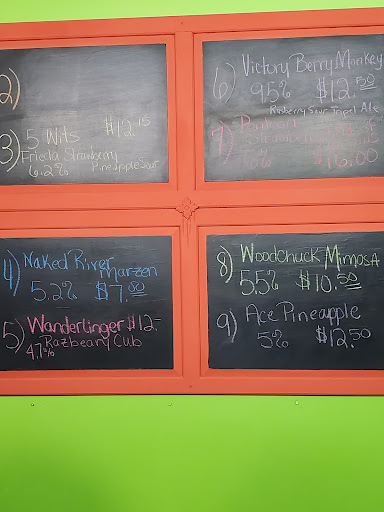 2)
3) 5 Wits $12.15
Frieda Strawberry
6.2% Pineapple Sour
4) Naked River
Marzen
5.2% $7.50
5) Wanderlinger $12.-
Razbeary Cub
4.7%
6) Victory Berry Monkey
9.5% $12.50
Raspberry Sour Tripel Ale
7)
$16.00
8) Woodchuck Mimosa
5.5% $10.50
9) Ace Pineapple
5% $12.50